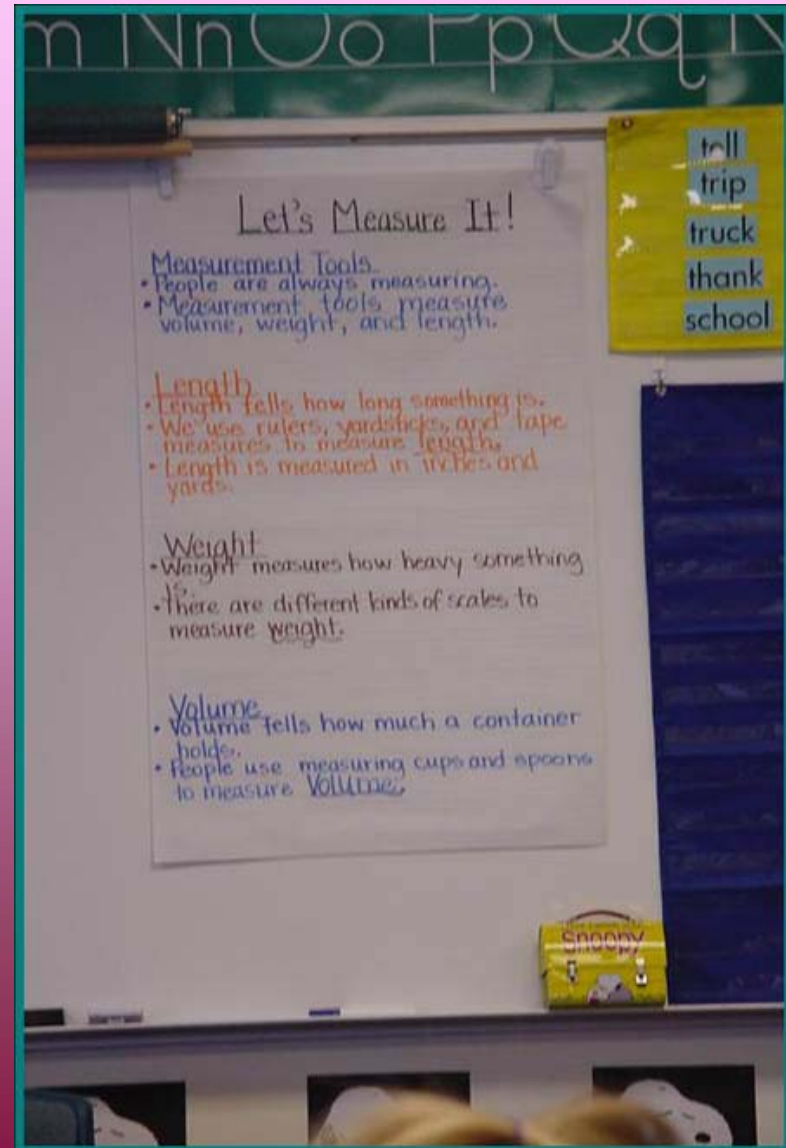 m Nn Oo Pp Qq
Let's Measure It!
Measurement Tools
• People are always measuring.
• Measurement tools measure
volume, weight, and length.
Length
• Length tells how long something is.
• We use rulers, yardsticks, and tape
measures to measure length.
• Length is measured in inches and
yards.
Weight
• Weight measures how heavy something
is.
• There are different kinds of scales to
measure weight.
Volume
• Volume tells how much a container
holds.
• People use measuring cups and spoons
to measure Volume.
trip
truck
thank
school
Snoopy